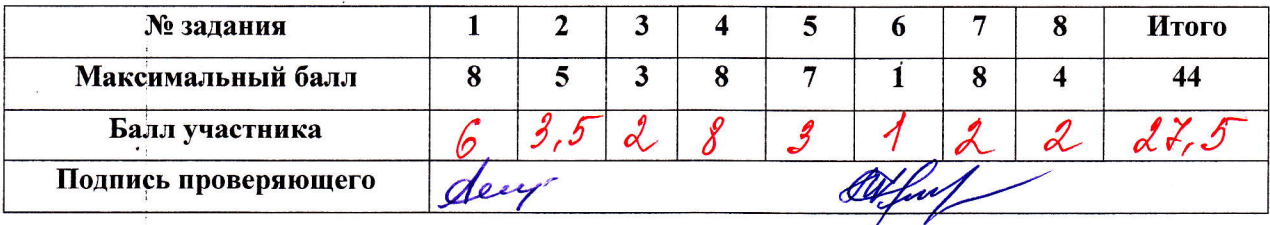 № задания 1 2 3 4 5 6 7 8 Итого
Максимальный балл 8 5 3 8 7 1 8 4 44
Балл участника 6 3,5 2 8 3 1 2 2 27,5
Подпись проверяющего